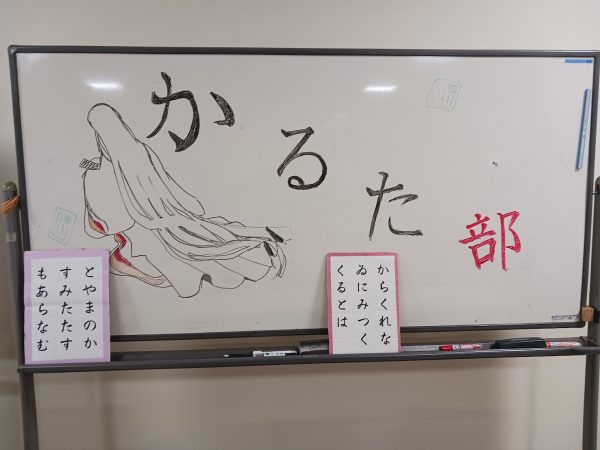 かるた部
とやまのか
すみたたす
もあらなむ
からくれな
ゐにみつく
くるとは